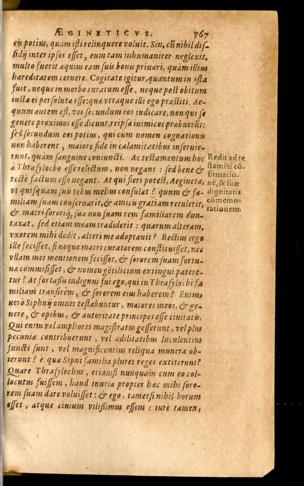 ÆGINETICVS. 767
eis potius, quàm isti relinquere voluit. Sin, cũ nihil dis-
sidij inter ipsos esset, eum tam inhumaniter neglexit,
multo fuerit æquius eam suis bonis priuari, quàm illius
hæreditatem cernere. Cogitate igitur, quantum in ista
fuit, neque in morbo curatum esse, neque post obitum
iusta ei persoluta esse: quæ vtraque illi ego præstiti. Æ-
quum autem est, vos secundum eos iudicare, non qui se
genere proximos esse dicunt, reipsa inimicos præbuerũt:
sed secundum eos potius, qui cum nomen cognationis
non haberent, maiore fide in calamitatibus inseruie-
runt, quàm sanguine coniuncti. Ac testamentum hoc
à Thrasylocho esse relictum, non negant: sed bene &
recte factum esse negant. At qui fieri potest, Æginetæ,
vt quisquam suis rebus melius consulat? quùm & fa-
miliam suam conseruarit, & amicis gratiam retulerit,
& matri sororiq́, suæ non suam rem familiarem dun-
taxat, sed etiam meam tradiderit: quarum alteram,
vxorem mihi dedit, alteri me adoptauit? Rectius ergo
ille fecisset, si neque matri curatorem constituisset, nec
vllam mei mentionem fecisset, & sororem suam fortu-
næ commisisset, & nomen gentilicium extingui patere-
tur? At fortassis indignus fui ego, qui in Thrasylochi fa
miliam transirem, & sororem eius haberem? Enim
uero Siphnij omnes testabuntur, maiores meos, & ge-
nere, & opibus, & autoritate principes esse ciuitatis.
Qui enim vel ampliores magistratus gesserunt, vel plus
pecuniæ contribuerunt, vel ædilitatibus luculentius
functi sunt, vel magnificentius reliqua munera ob-
ierunt? è qua Siphni familia plures reges extiterunt?
Quare Thrasylochus, etiamsi nunquam cum eo col-
locutus fuissem, haud iniuria propter hæc mihi soro-
rem suam dare voluisset: & ego, tametsi nihil horum
esset, atque ciuium vilissimus essem: iure tamen,
Redit ad te
stamẽti cõ-
firmatio-
nẽ, & suæ
dignitatis
cõmemo
rationem